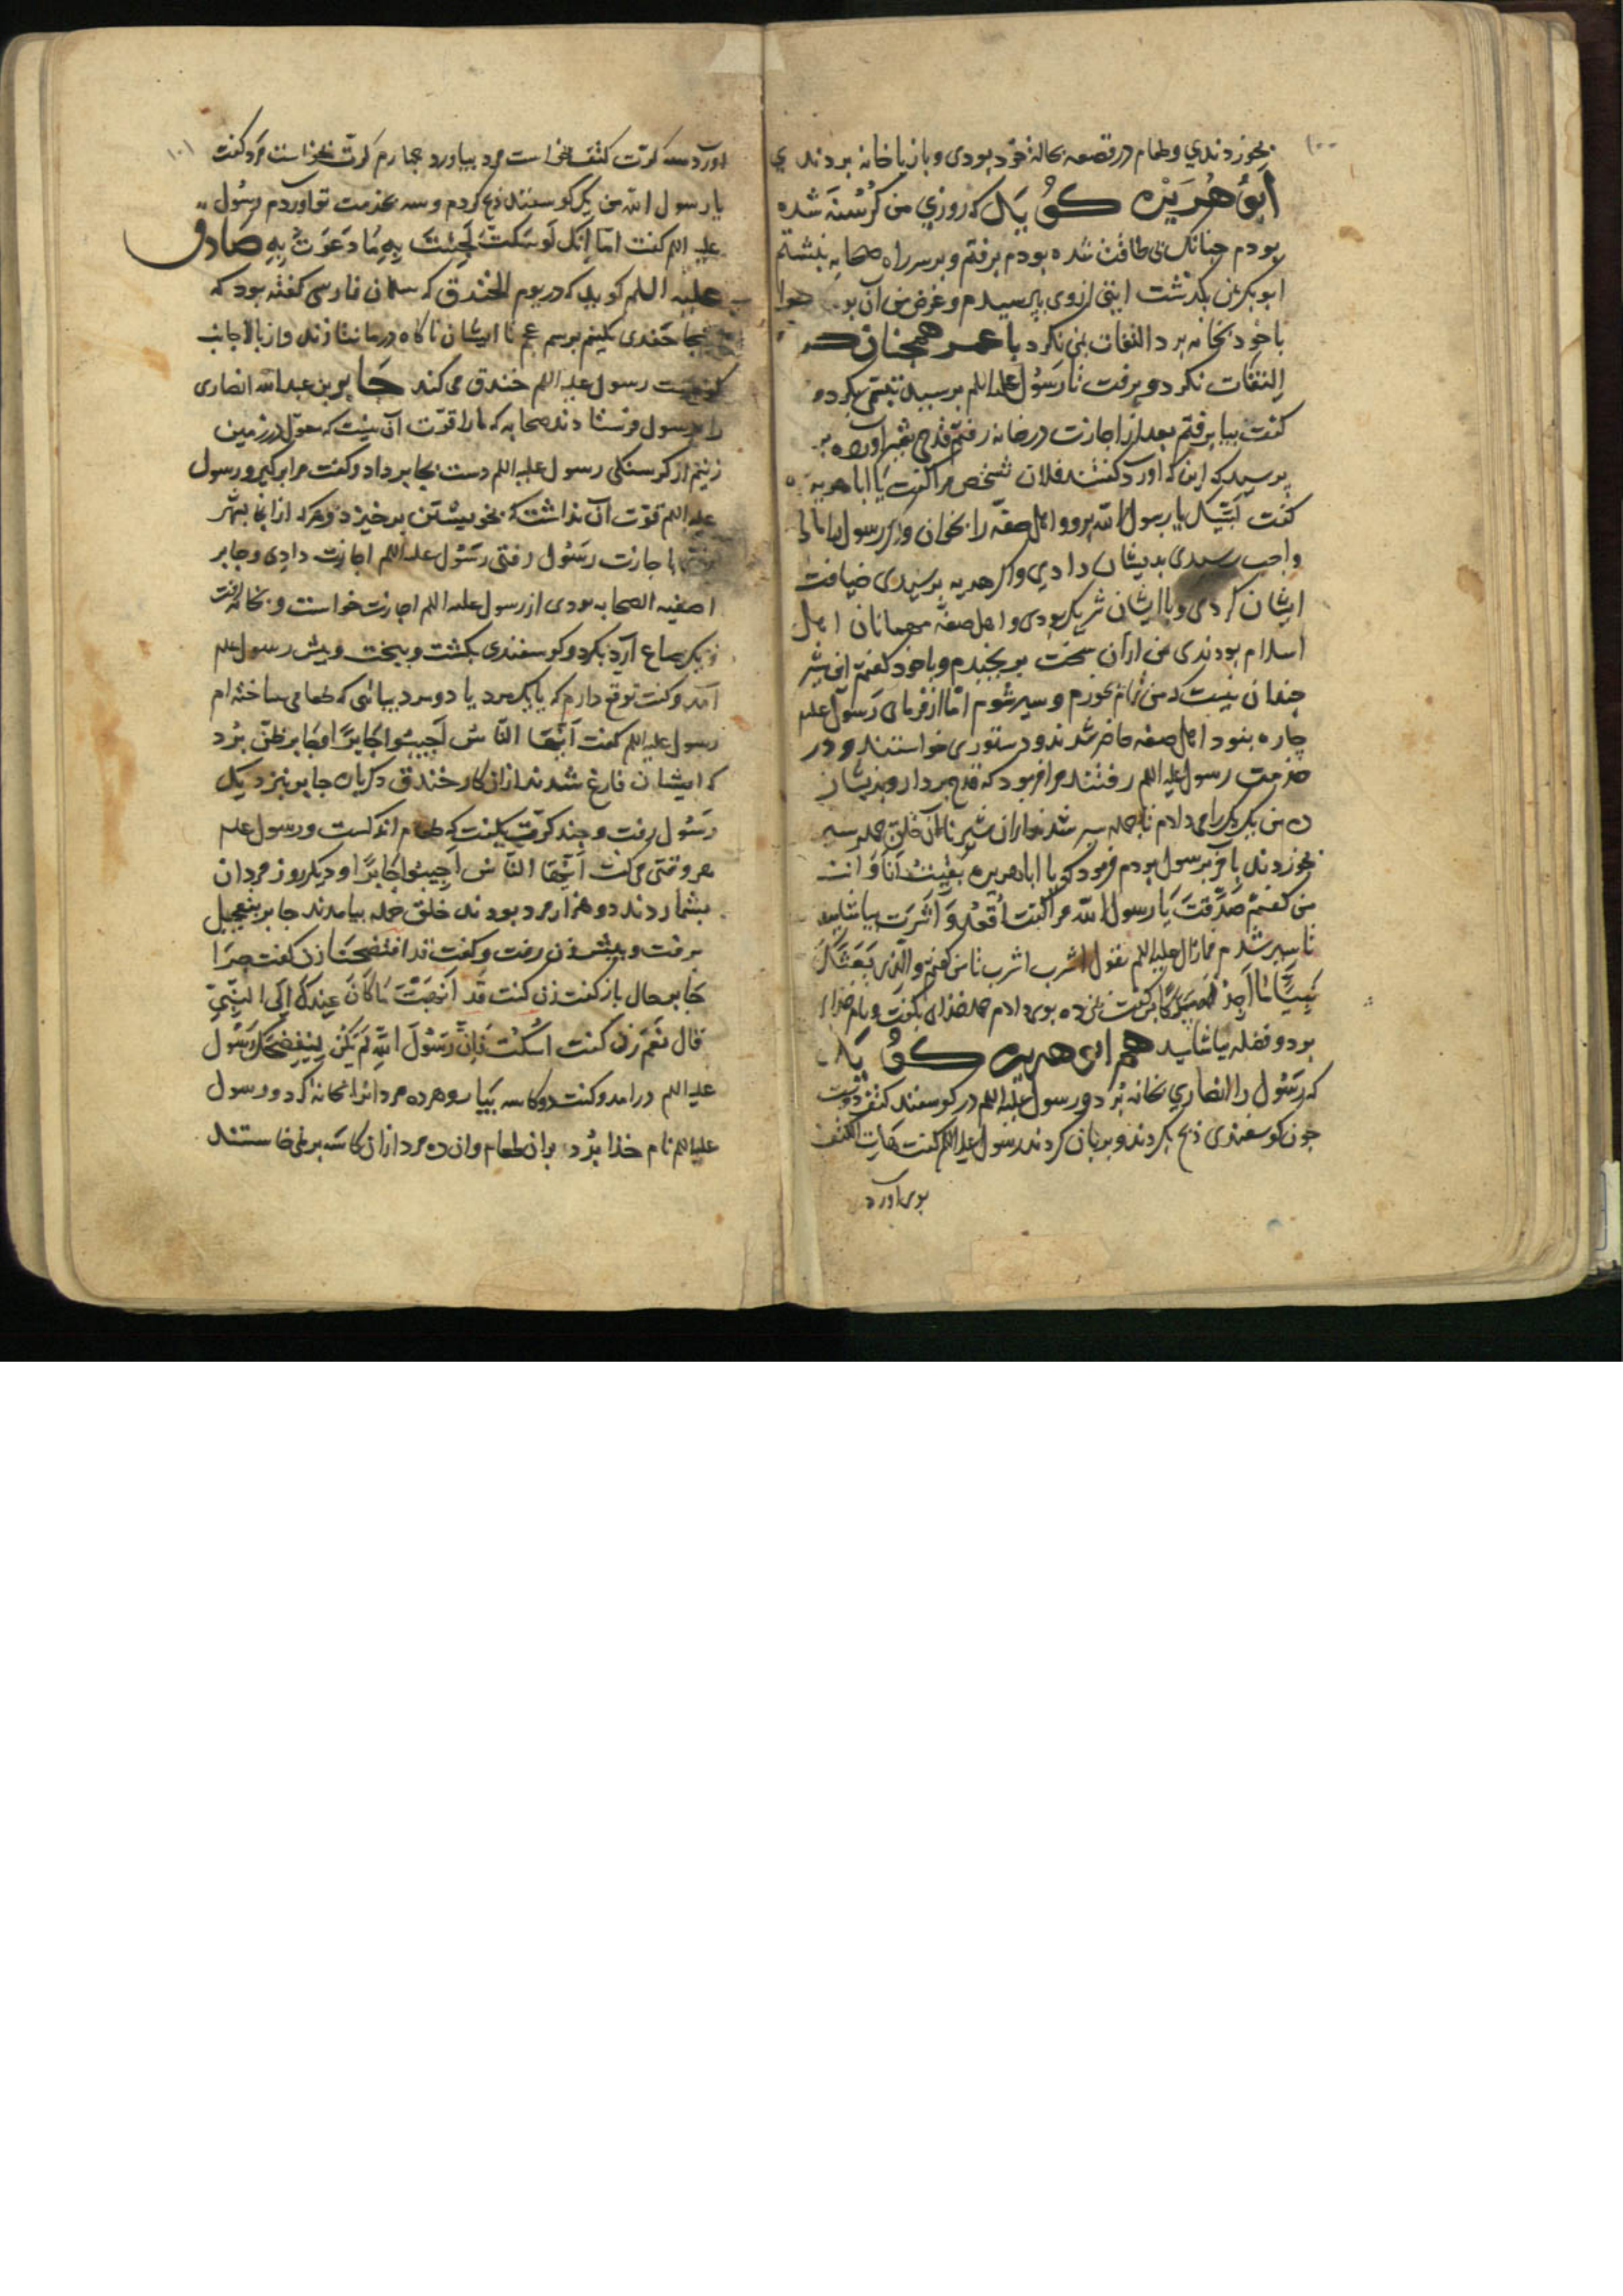 ۱۰۰
بخوردندی و طعام در قصعه بحالهٔ خود بودی و باز با خانه بردندی
اَبُو هُرَیْرَه کُویَد که روزی من کُرُسْنَه شده
بودم چنانک بی طاقت شده بودم برفتم و بر سر راه صحابه بنشستم
ابو بکر بمن بکذشت ایتی از وی پرسیدم و غرض من آن بود
با خود بخانه برد التفات بمن نکرد با عمر همچنان
التفات نکرد و برفت تا رَسُول علیه اللم برسید تبسّمی بکرد و
کفت بیا برفتم بعد از اجازت در خانه رفتم قدحی شیر
پرسید که این که اورد کفتند فلان شخص مرا کفت یا ابا هریره
کفت لبّیک یا رسول الله برو و اهل صفّه را بخوان و اکر رسول را
واجب رسیدی بدیشان دادی و اکر هدیه برسیدی ضیافت
ایشان کردی و با ایشان شریک بودی و اهل صفّه مهمانان اهل
اسلام بودندی من از آن سخت برنجیدم و باخود کفتم این شیر
چندان نیست که من تمام بخورم و سیر شوم امّا از فرمان رَسُول علیه
چاره نبود اهل صفه حاضر شدند و دستوری خواستند و در
خدمت رسول علیه اللم رفتند مرا فرمود که قدح بردار و بدیشان
ده من یک یک را می دادم تا جمله سیر شدند از ان شیر تا آن خلق جمله سیر
بخوردند باخر برسول بردم فرمود که یا ابا هریره بَقِیتُ اَنَا وَ انت
من کفتم صَدَقْتَ یَا رسول الله مرا کفت اُقعُد وَ اشرَب بیاشامیدم
تا سیر شدم فما زال علیه اللم یقول اشرب اشرب تا من کفتم و الّذی بَعَثَکَ
نَبِیًّا ما اَجِدُ لَه مَسلکًا کفت بمن ده بوی دادم حمد خدای بکفت و نام خدای
بود و فضله بیاشامید هم ابی هریره کُویَد
که رَسُول را انصاری بخانه بُرد و رسول علیه اللم در کوسفند کتف دوست
چون کوسفندی ذبح بکردند و بریان کردند رسول علیه اللم کفت هَاتِ الکتف
بوی اورد
۱۰۱
اورد سه کرّت کتف خواست مرد بیاورد چهارم کرّت بخواست مرد کفت
یا رسول الله من یک کوسفند ذبح کردم و سه بخدمت تو آوردم رسُول
علیه اللم کفت اَما اِنَّک لَو سَکَتَّ لَجِئتَ بِهِ مَا دَعَوتُ بِهِ صادق
علیه اللم کوید که در یوم الخندق که سلمان فارسی کفته بود که
خندقی بکنیم برسم عجم تا ایشان ناکاه درما نتازند و از بالا جانب
رسول علیه اللم خندق می کند جَابِر بن عبدالله انصاری
را برسول فرستادند صحابه که ما را قوّت آن نیست که معول در زمین
زنیم از کرسنکی رسول علیه اللم دست بجابر داد و کفت مرا برکیر و رسول
علیه اللم قوّت آن نداشت که بخویشتن برخیزد و هرکه از انجا بشهر
باجازت رسُول رفتی رسُول علیه اللم اجازت دادی و جابر
اصفیه الصحابه بودی از رسول علیه اللم اجازت خواست و بخانه رفت
و یک صاع آرد بکرد و کوسفندی بکشت و بپخت و پیش رسول علم
آمد و کفت توقع دارم که با یک مرد یا دو مرد بیائی که طعامی ساخته ام
رسول علیه اللم کفت اَیُّهَا النّاسُ اَجِیبُوا جَابِرًا و جَابر ظنّ بُرد
که ایشان فارغ شدند از ان کار خندق دکرباره جابر بنزدیک
رَسُول رفت و چند کرّت بکفت که طعام اندکست و رسول علم
هر وقتی می کفت اَیُّهَا النَّاس اَجِیبُوا جَابِرًا و دیکر روز مردان
بشماردند دو هزار مرد بودند خلق جمله بیامدند جابر بتعجیل
برفت و پیش زن رفت و کفت قد افتضحنا زن کفت چرا
جَابر حال باز کفت زن کفت قَد اَنهَیْتَ مَا کَانَ عِندَکَ اِلَی النَّبِیّ
قال نَعَم زن کفت اسْکُتْ فَاِنَّ رَسُولَ اللهِ لَم یَکُن لِیَفضَحَکَ رسُول
علیه اللم درامد و کفت دو کاسه بیار و هر ده مرد انرا بخانه کرد و رسول
علیه اللم نام خدا بُرد بران طعام و ان ده مرد از ان کاسه برنمی خاستند